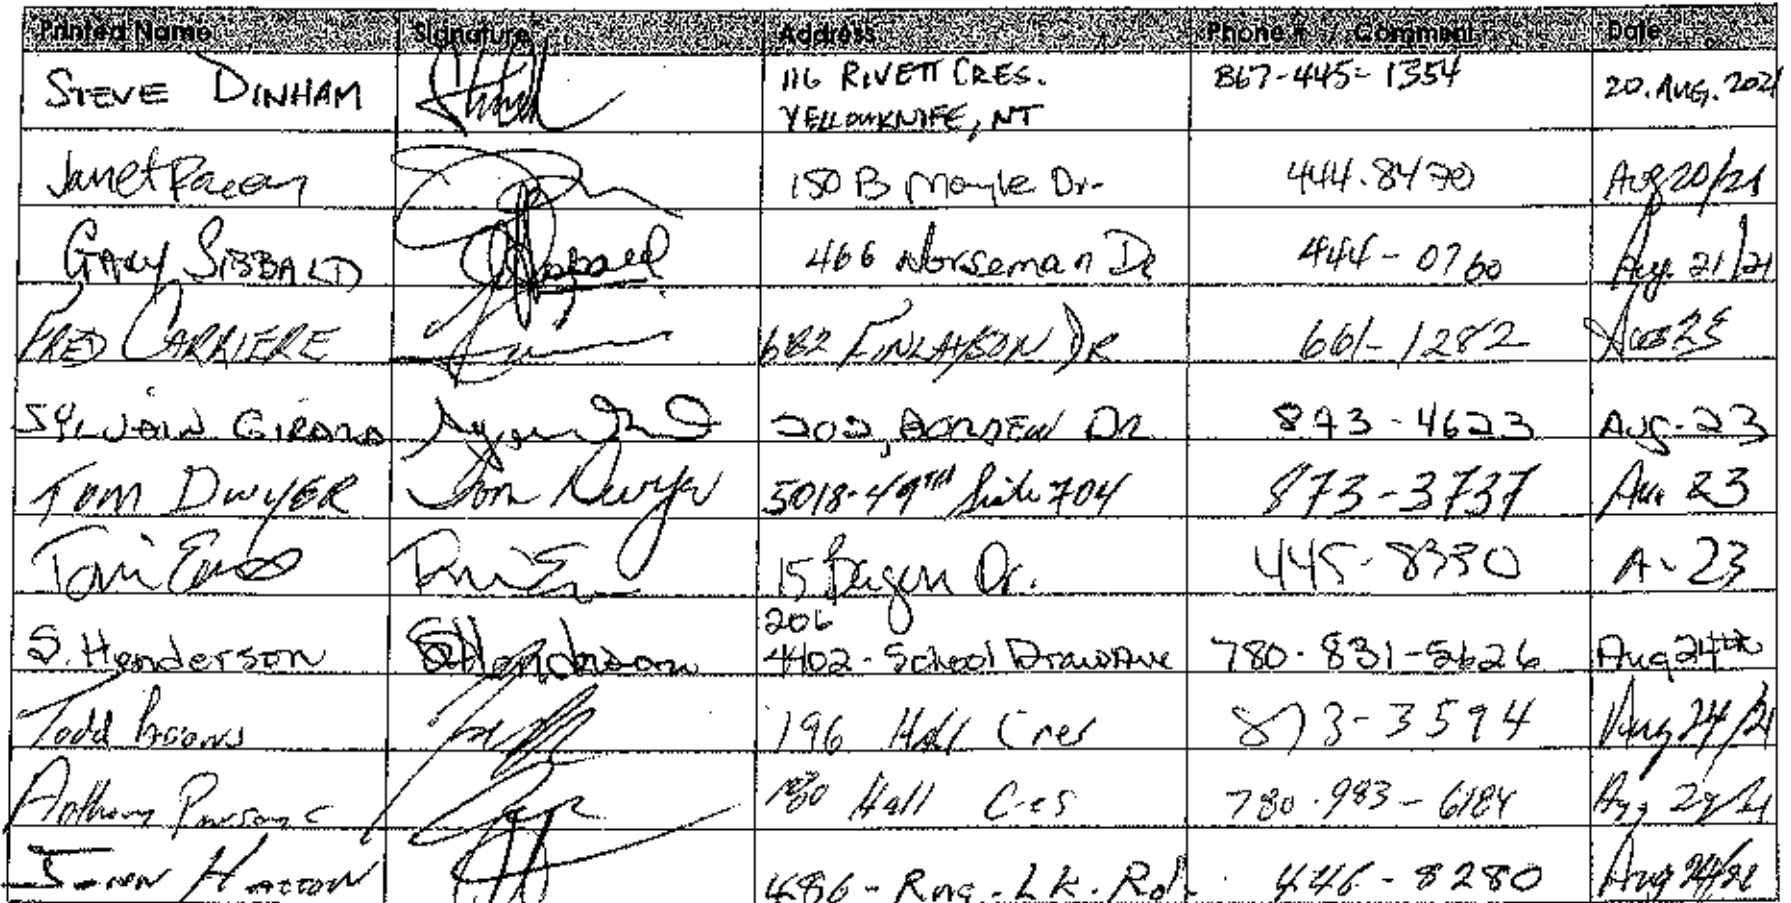 Printed Name Signature Address Phone # / Comment Date
STEVE DINHAM 116 RIVETT CRES. 867-445-1354 20.AUG.2021
YELLOWKNIFE, NT
Janet 150 B Moyle Dr. 444.8470 Aug 20/21
GARY SIBBALD 466 Norseman Dr 444-0760 Aug. 21/21
FRED CARRIERE 682 FINLAYSON DR 661-1282
SYLVAIN GIRARD 202, BORDEN DR 873-4623 Aug-23
TOM DWYER Tom Dwyer 5018-49TH Suite 704 873-3737 Au 23
Tom 15 Dr. 445-8330 A- 23
206
S. Henderson SHenderson 4402-School Draw Ave 780-831-5626 Aug 24th
Todd 196 Hall Cres 873-3594 Aug 24/21
Anthony Parsons Hall Cres 780-983-6184 Aug
Hatton 486-Rng.Lk.Rd. 446-8280 Aug 24/21